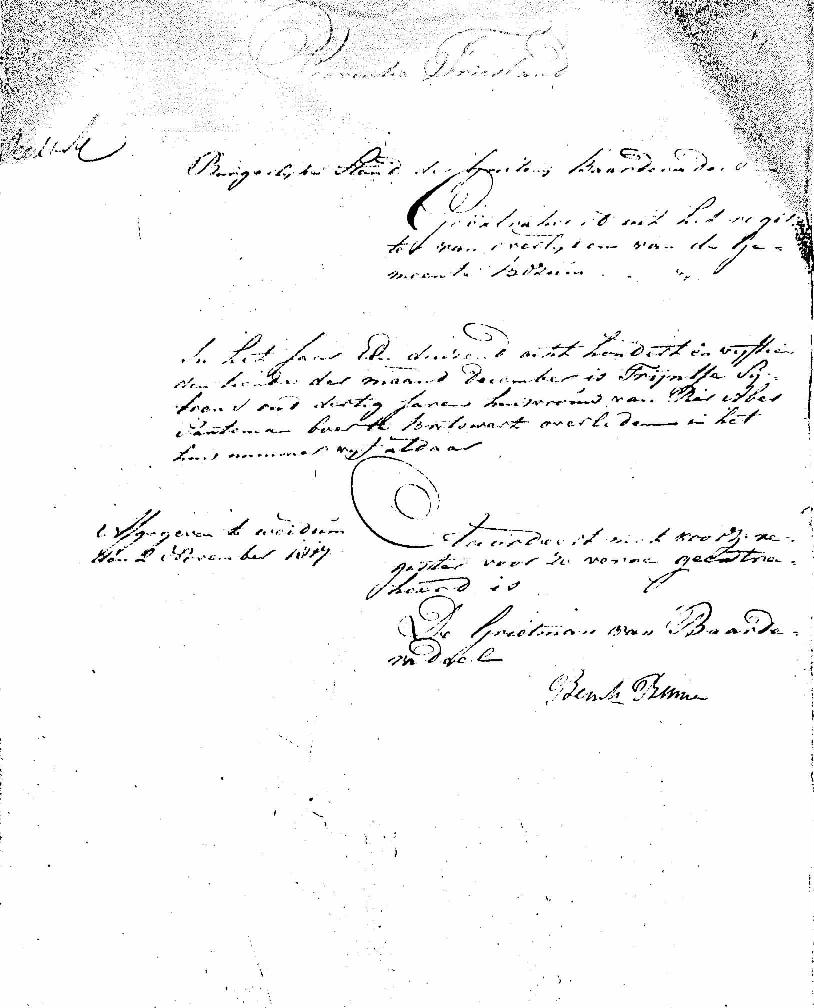 Provincie Friesland
Burgerlyke Stand der
Geextraheerd uit het regis
ter van overlydens van de Ge=
meente Bozum
In het Jaar Een duizend acht hondert en vyftien
den tiende der maand December is Trijntje Sy=
brens oud dertig Jaren huisvrouw van
boer te Britswert overleden in het
huis nummer vyf aldaar
Afgegeven te Weidum
den 2 November 1817
Accordeert met voorsz: re=
gister voor zo verre geextra=
heerd is
De Grietman van Baarde=
radeel